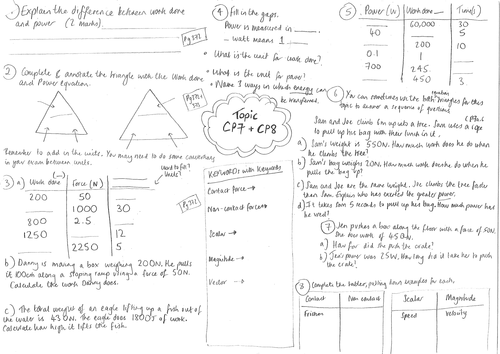 1) Explain the difference between work done
and power (2 marks)
Pg 232
2) Complete & annotate the triangle with the Work done
and Power equation.
Remember to add in the units. You may need to do some conversions
in your exam between units.
3) a) Work done (—) Force (N)
200 50
1000 30
800 2.5
1250 12
2250 5
b) Danny is moving a box weighing 200N. He pulls
it 100cm along a sloping ramp using a force of 50N.
Calculate the work Danny does.
c) The total weight of an eagle lifting up a fish out of
the water is 430N. The eagle does 1800J of work.
Calculate how high it lifts the fish.
4) Fill in the gaps.
Power is measured in
watt means 1
What is the unit for work done?
What is the unit for power?
Name 3 ways in which energy can
be transferred.
Topic
CP7 + CP8
Keywords
Contact force →
Non-contact force →
Scalar →
Magnitude →
Vector →
5) Power (W) Work done Time(s)
60,000 30
40 5
200 10
0.1 1
700 245
450 3
6) You can sometimes use the both equation triangles for this
topic to answer a sequence of questions
Sam and Joe climb 5m up into a tree. Sam uses a rope
to pull up his bag with their lunch in it.
a) Sam's weight is 550N. How much work does he do when
he climbs the tree?
b) Sam's bag weighs 20N. How much work does he do when he
pulls the bag up?
c) Sam and Joe are the same weight. Joe climbs the tree faster
than Sam. Explain who has exerted the greater power.
d) It takes Sam 5 seconds to pull up his bag. How much power has
he used?
7) Jen pushes a box along the floor with a force of 50N.
She does work of 450N.
a) How far did she push the crate?
b) Jen's power was 25W. How long did it take her to push
the crate?
8) Complete the tables, putting down examples for each.
Contact Non contact
Friction
Scalar Magnitude
Speed Velocity